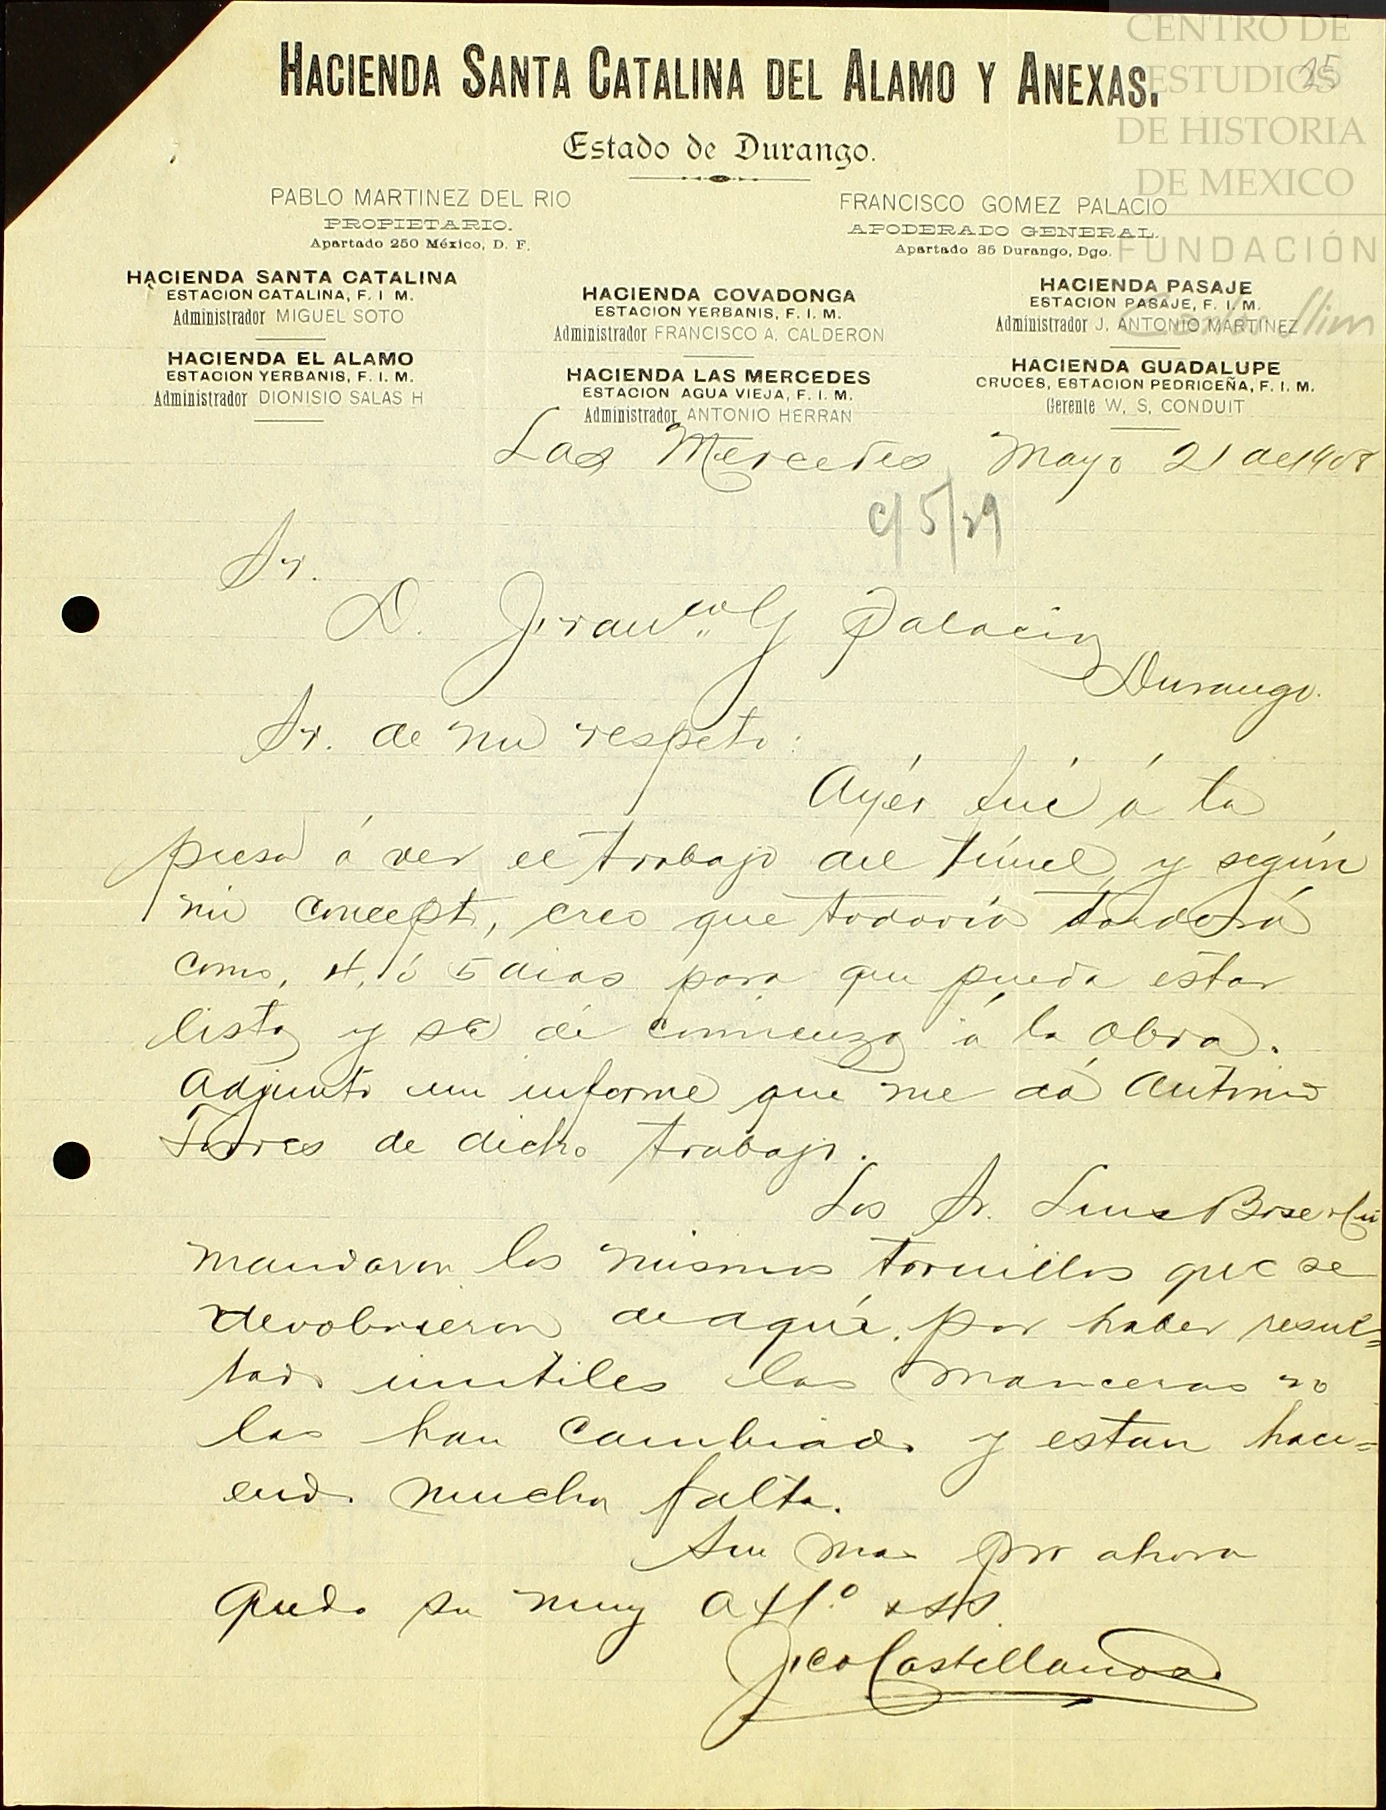 CENTRO DE
ESTUDIOS
DE HISTORIA
DE MEXICO
FUNDACIÓN
Carlos Slim
25
HACIENDA SANTA CATALINA DEL ALAMO Y ANEXAS.
Estado de Durango.
PABLO MARTINEZ DEL RIO
PROPIETARIO.
Apartado 250 México, D. F.
FRANCISCO GOMEZ PALACIO
APODERADO GENERAL.
Apartado 35 Durango, Dgo.
HACIENDA SANTA CATALINA
ESTACION CATALINA, F. I M.
Administrador MIGUEL SOTO
HACIENDA EL ALAMO
ESTACION YERBANIS, F. I. M.
Administrador DIONISIO SALAS H
HACIENDA COVADONGA
ESTACION YERBANIS, F. I. M.
Administrador FRANCISCO A. CALDERON
HACIENDA LAS MERCEDES
ESTACION AGUA VIEJA, F. I. M.
Administrador ANTONIO HERRAN
HACIENDA PASAJE
ESTACION PASAJE, F. I. M.
Administrador J. ANTONIO MARTINEZ
HACIENDA GUADALUPE
CRUCES, ESTACION PEDRICEÑA, F. I. M.
Gerente W. S. CONDUIT
Las Mercedes Mayo 21 de 1908
c/ 5/29
Sr.
D. Franco G Palacio
Durango.
Sr. de mi respeto:
Ayér fuí á la
presa á ver el trabajo del túnel, y según
mi concepto, creo que todavía tardará
como, 4, ó 5 dias para que pueda estar
listo y se dé comienzo á la obra.
Adjunto un informe que me dá Antonio
Torres de dicho trabajo.
Los Sr.
mandaron los mismos tornillos que se
devolvieron de aquí, por haber resul=
tado inutiles las manceras no
las han cambiado y estan haci=
endo mucha falta.
Sin mas por ahora
quedo su muy affº. y SS
Fco Castellanos.